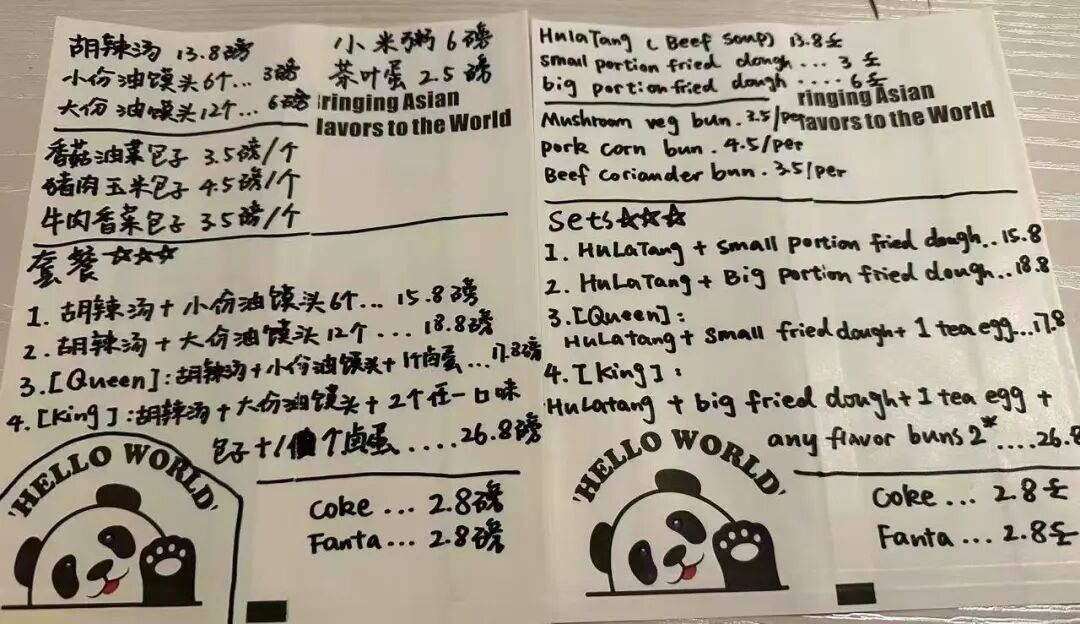 胡辣汤 13.8磅
小份油馍头6个... 3磅
大份油馍头12个... 6磅
小米粥 6磅
茶叶蛋 2.5磅
ringing Asian
lavors to the World
香菇油菜包子 3.5磅/个
猪肉玉米包子 4.5磅/个
牛肉香菜包子 3.5磅/个
套餐☆☆☆
1. 胡辣汤+小份油馍头6个... 15.8磅
2. 胡辣汤+大份油馍头12个... 18.8磅
3.[Queen]:胡辣汤+小份油馍头+1个卤蛋...17.8磅
4.[King]:胡辣汤+大份油馍头+2个任一口味
包子+1个卤蛋.....26.8磅
'HELLO WORLD'
Coke ... 2.8磅
Fanta ... 2.8磅
HulaTang ( Beef Soup) 13.8£
small portion fried dough ... 3 £
big portion fried dough .... 6£
ringing Asian
lavors to the World
Mushroom veg bun. 3.5/per
pork corn bun. 4.5/per
Beef coriander bun. 3.5/per
Sets☆☆☆
1. HuLaTang + small portion fried dough..15.8
2. HuLaTang + Big portion fried dough..18.8
3.[Queen]:
HuLatang + small fried dough+ 1 tea egg...17.8
4.[King]:
HuLatang + big fried dough+1 tea egg +
any flavor buns 2*....26.8
'HELLO WORLD'
Coke ... 2.8£
Fanta ... 2.8£